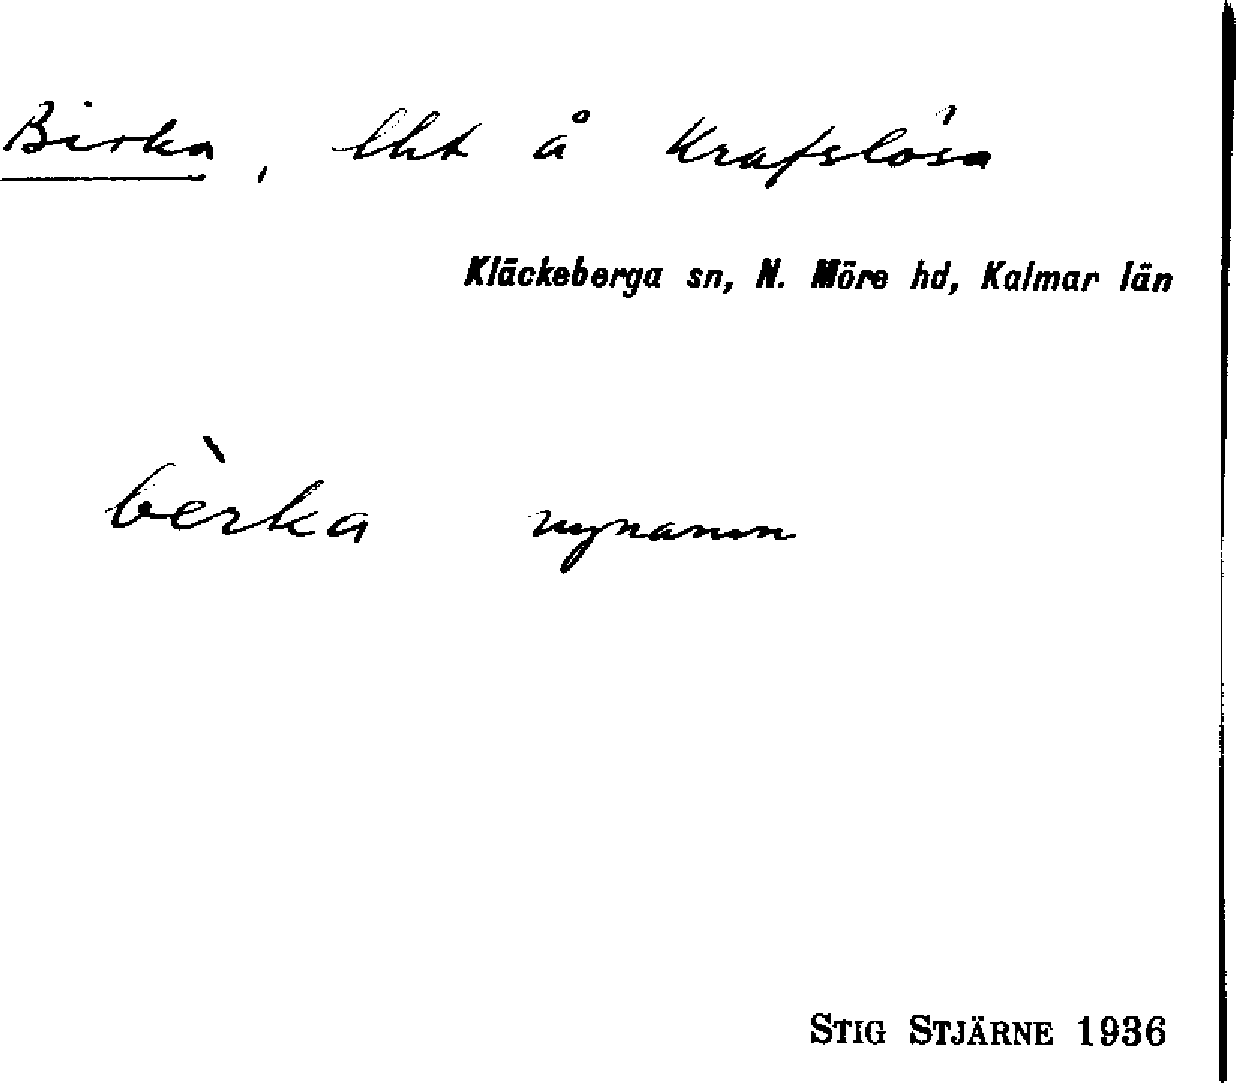 Birka, lht å Krafslösa
Kläckeberga sn, N. Möre hd, Kalmar län
bèrka nynamn
STIG STJÄRNE 1936